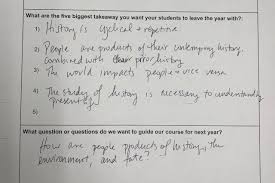 What are the five biggest takeaway you want your students to leave the year with?:
1) History is cyclical + repetitive
2) People are products of their contemporary history
combined with their prior history
3) The world impacts people + vice versa
4) The study of history is necessary to understanding
present day
5)
What question or questions do we want to guide our course for next year?
How are people products of history, the
environment, and fate?